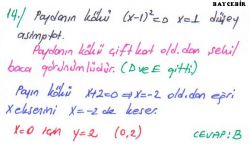 BAYCEBİR
14-) Paydanın kökü (x-1)²=0 x=1 düşey
asimptot.
Paydanın kökü çift kat old.dan şekil
baca görünümlüdür. (D ve E gitti)
Payın kökü x+2=0 ⇒ x=-2 old.dan eğri
x eksenini x=-2 de keser.
x=0 için y=2 (0,2) CEVAP: B